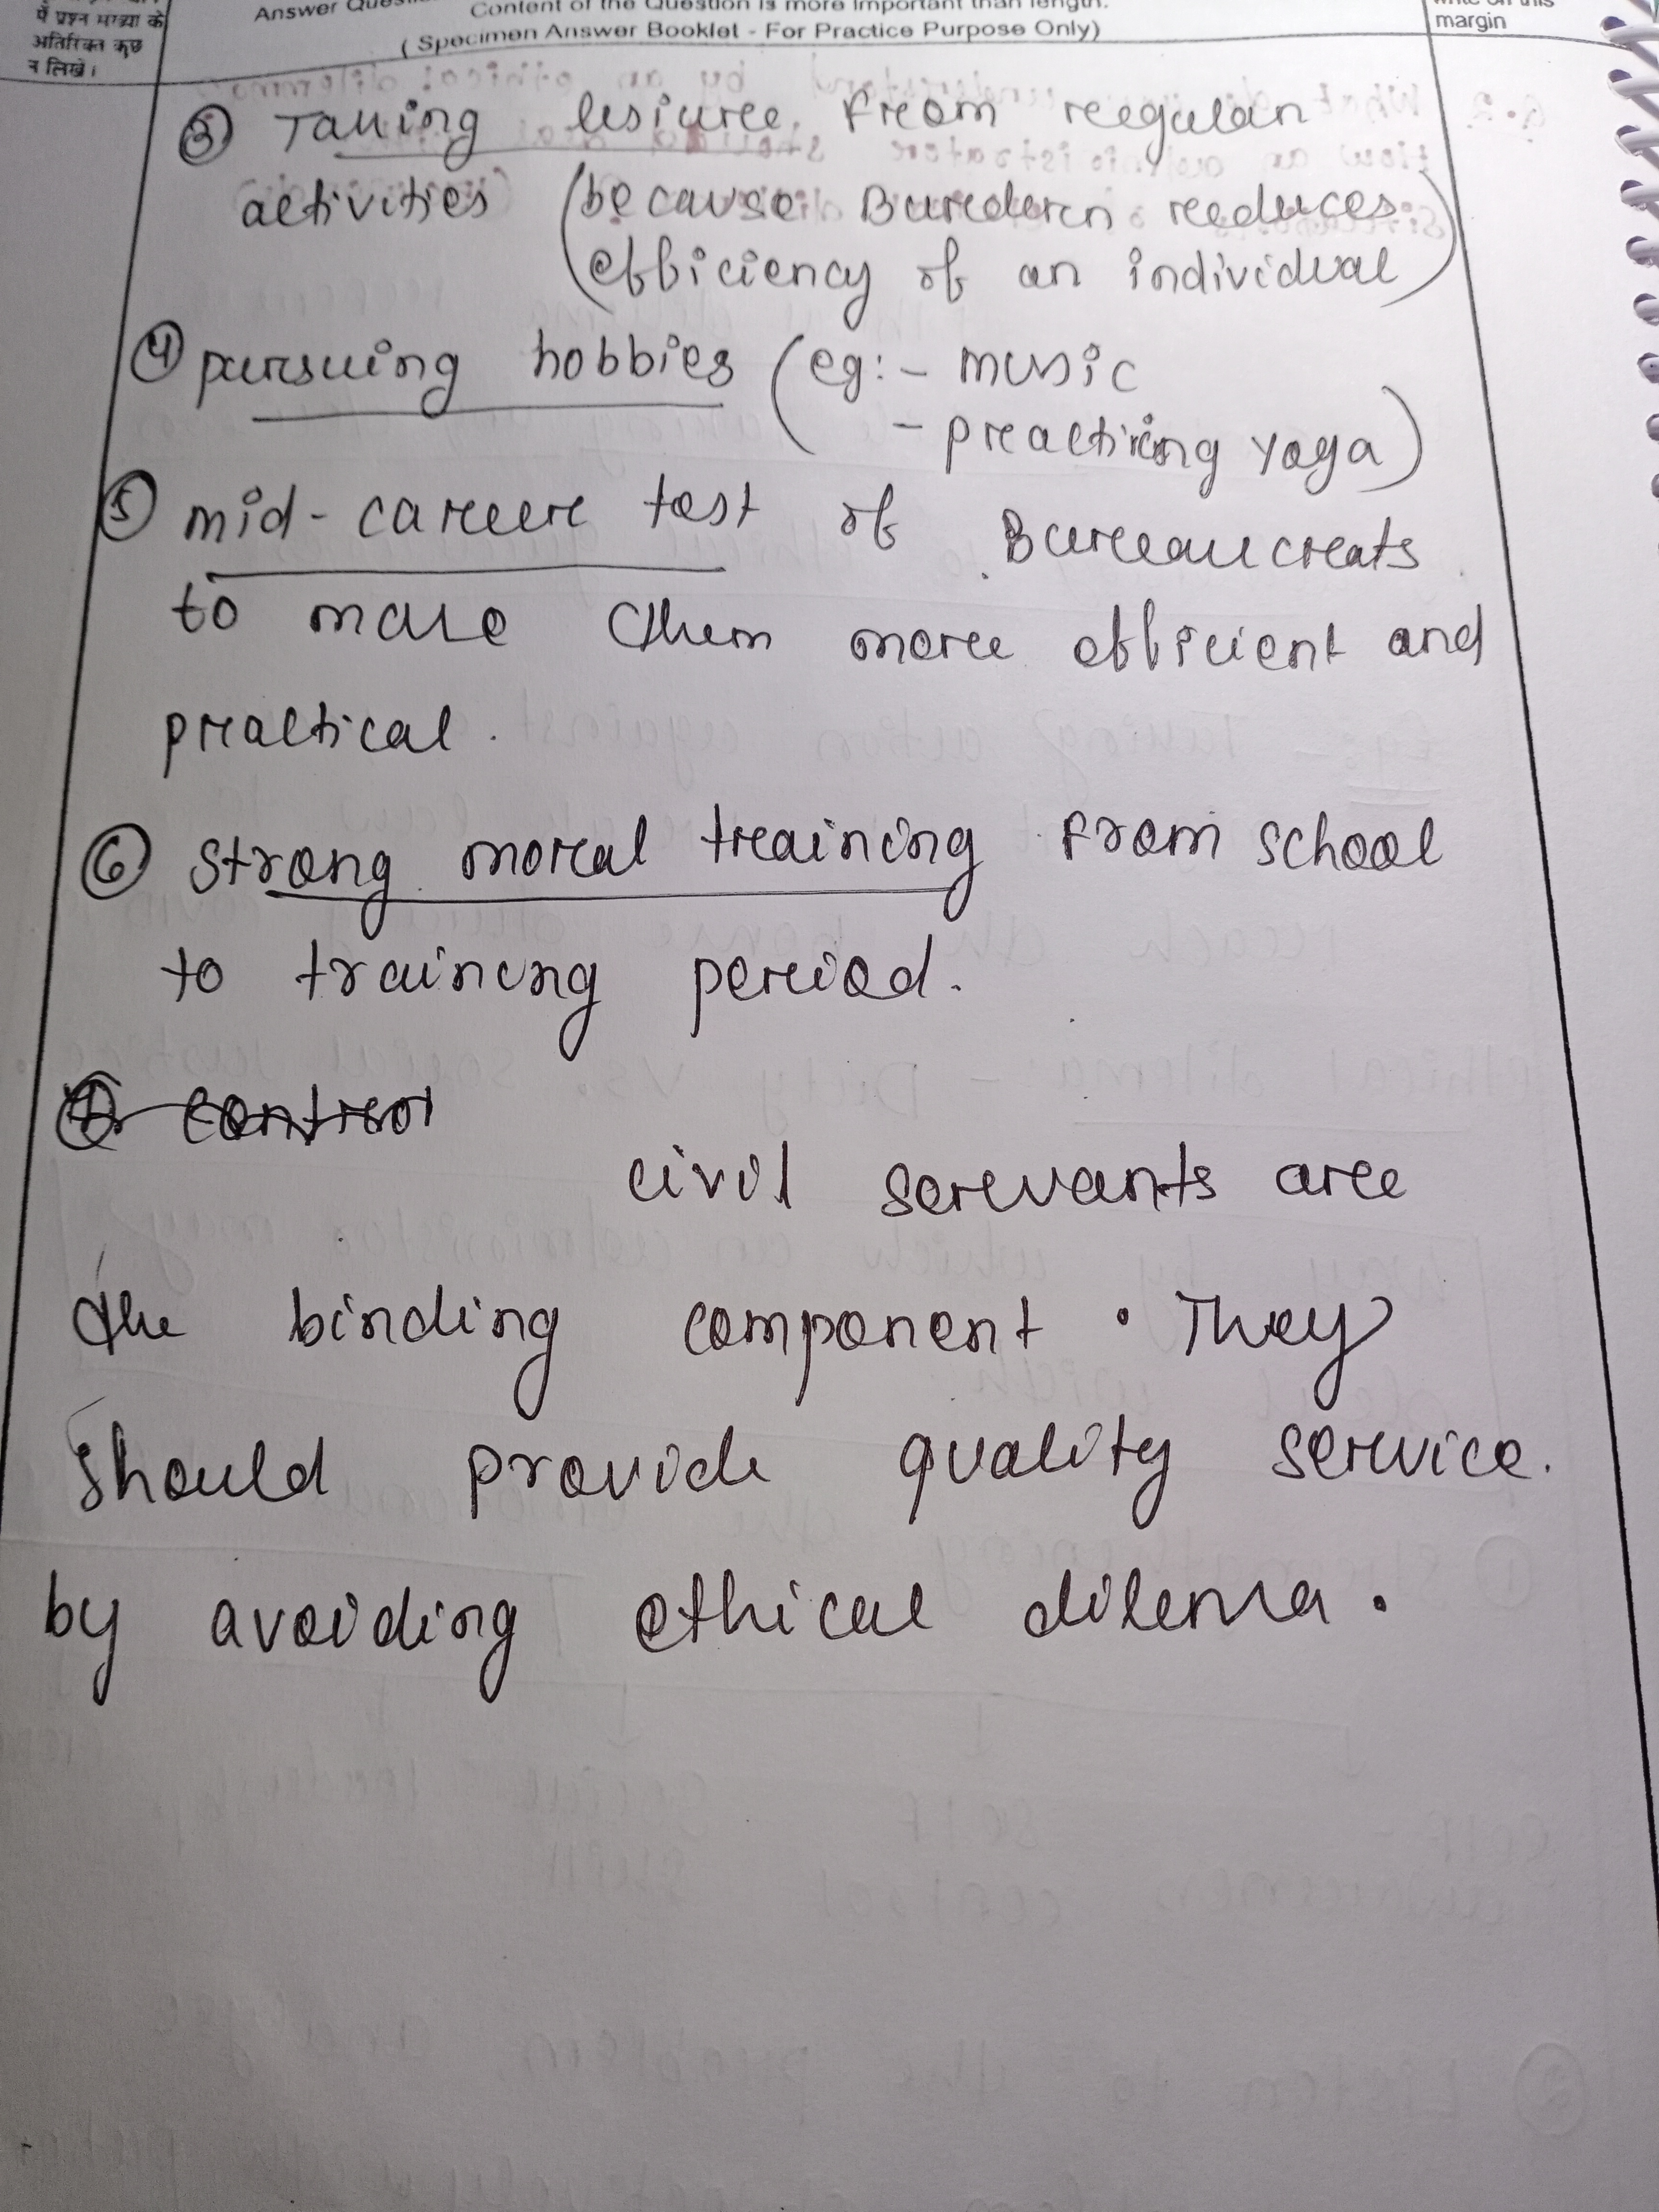 में प्रश्न संख्या के
अतिरिक्त कुछ
न लिखें।
Content of the Question is more important than length.
( Specimen Answer Booklet - For Practice Purpose Only)
margin
③ Taking lesiure from regular
activities (because Burden reduces
efficiency of an individual)
④ pursuing hobbies (eg:- music
- practicing yoga)
⑤ mid-career test of Bureaucrats
to make them more efficient and
practical.
⑥ strong moral training from school
to training period.
control
civil servants are
the binding component. They
should provide quality service.
by avoiding ethical dilema.